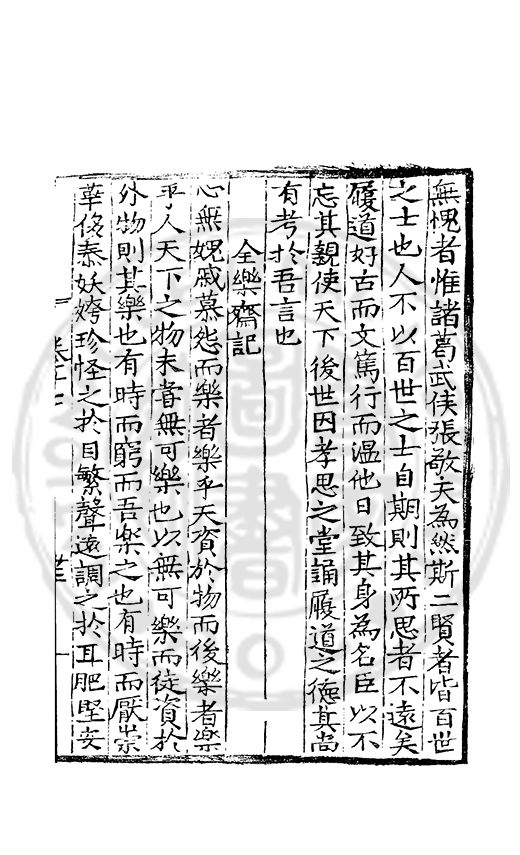 無愧者惟諸葛武侯張敬夫為然斯二賢者皆百世
之士也人不以百世之士自期則其所思者不遠矣
履道好古而文篤行而溫他日致其身為名臣以不
忘其親使天下後世因孝思之堂誦履道之德其尚
有考於吾言也
全樂齋記
心無媿戚慕怨而樂者樂乎天資於物而後樂者樂
乎人天下之物未嘗無可樂也以無可樂而徒資於
外物則其樂也有時而窮而吾樂之也有時而厭崇
華侈泰妖姱珍怪之於目繁聲遠調之於耳肥堅安